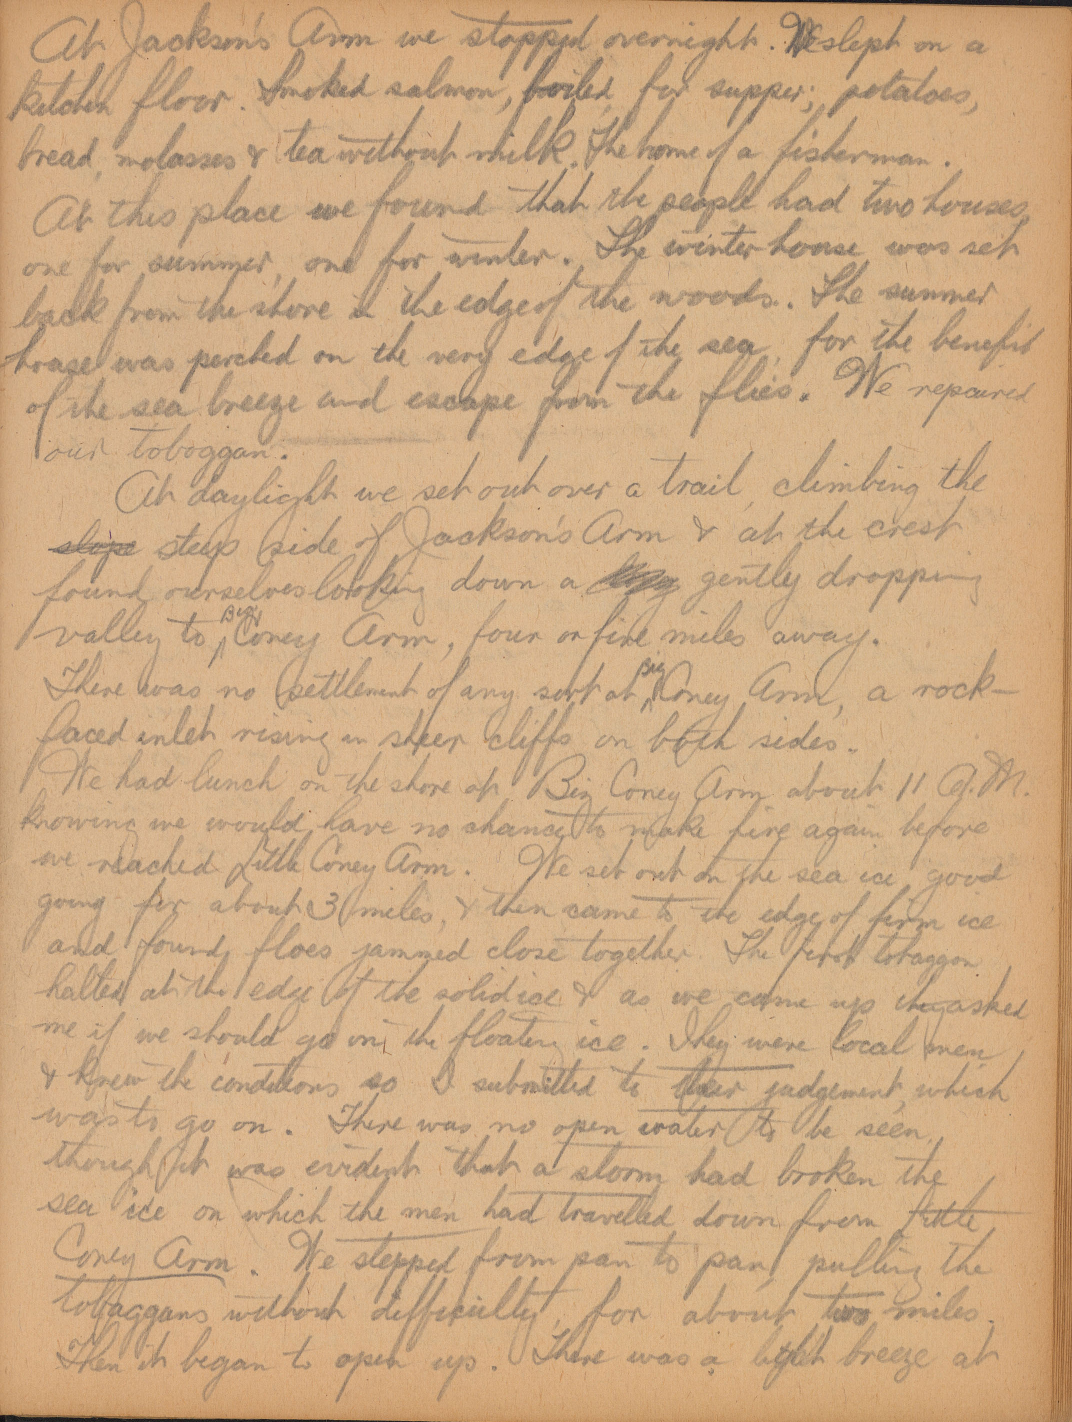 At Jackson's Arm we stopped overnight. We slept on a
kitchen floor. Smoked salmon, boiled, for supper; potatoes,
bread, molasses & tea without milk. The home of a fisherman.
At this place we found that the people had two houses,
one for summer, one for winter. The winter house was set
back from the shore in the edge of the woods. The summer
house was perched on the very edge of the sea, for the benefit
of the sea breeze and escape from the flies. We repaired
our toboggan.
At daylight we set out over a trail, climbing the
slope steep side of Jackson's Arm & at the crest
found ourselves looking down a gently dropping
valley to Big Coney Arm, four or five miles away.
There was no settlement of any sort at Big Coney Arm, a rock-
faced inlet rising in sheer cliffs on both sides.
We had lunch on the shore at Big Coney Arm about 11 A.M.
knowing we would have no chance to make fire again before
we reached Little Coney Arm. We set out on the sea ice, good
going for about 3 miles, & then came to the edge of firm ice
and found floes jammed close together. The first tobaggon
halted at the edge of the solid ice & as we came up they asked
me if we should go on, the floating ice. They were local men,
& knew the conditions so I submitted to their judgement, which
was to go on. There was no open water to be seen,
though it was evident that a storm had broken the
sea ice on which the men had travelled down from Little
Coney Arm. We stepped from pan to pan, pulling the
tobaggans without difficulty, for about two miles.
Then it began to open up. There was a light breeze at